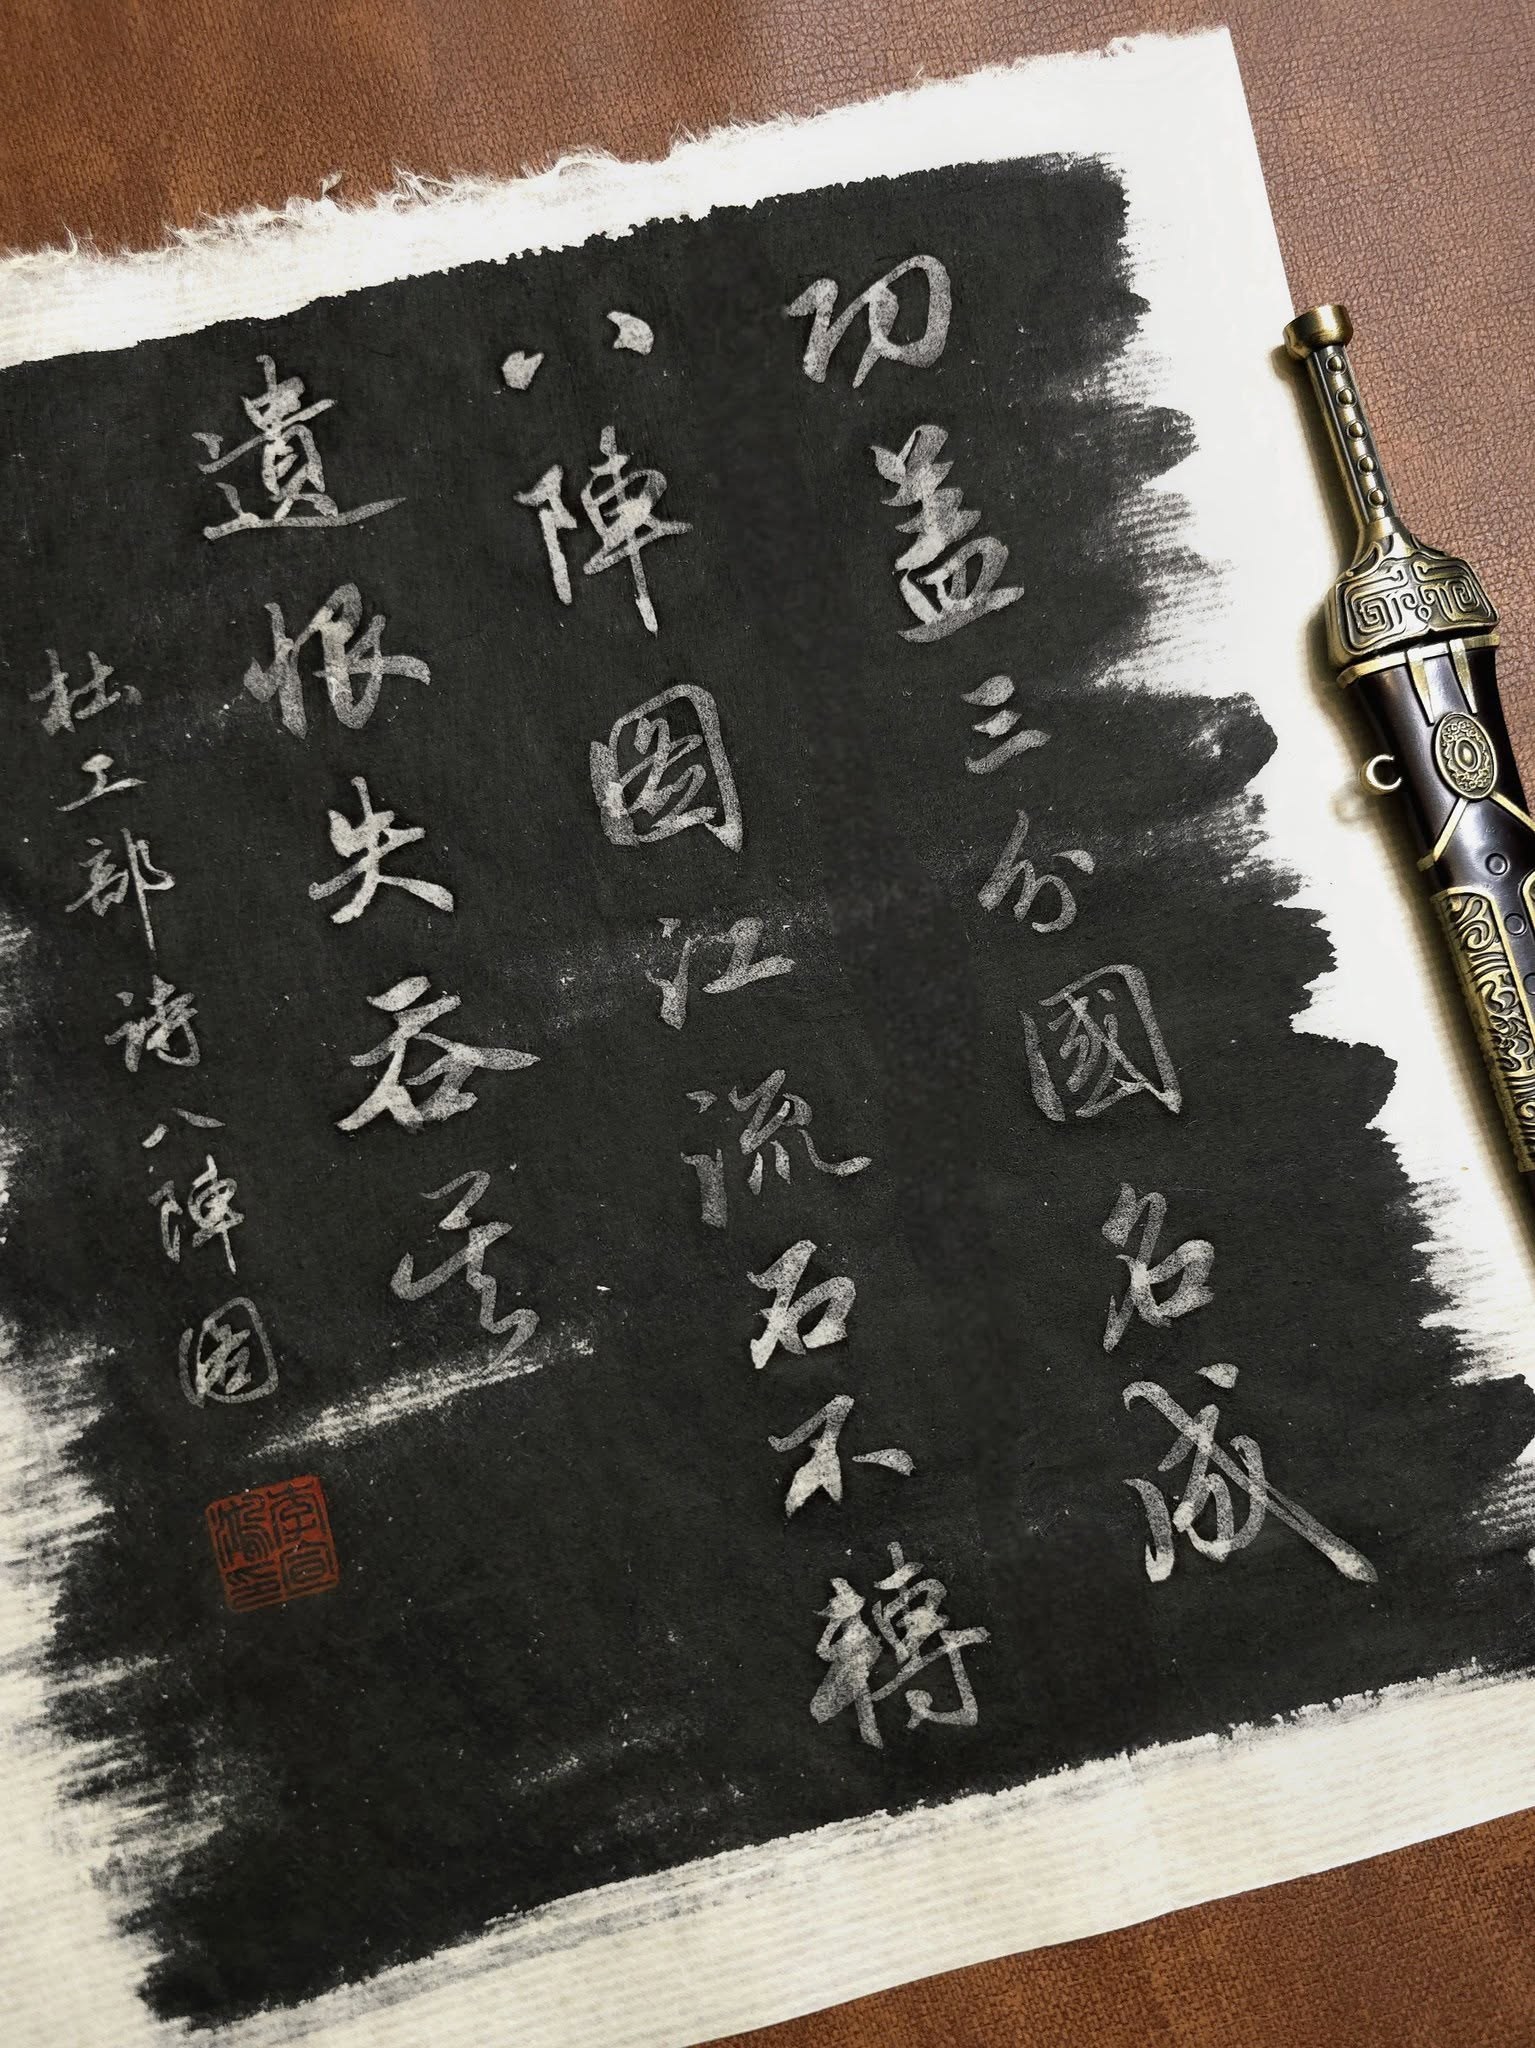 功蓋三分國名成
八陣圖江流石不轉
遺恨失吞吳
杜工部詩八陣圖